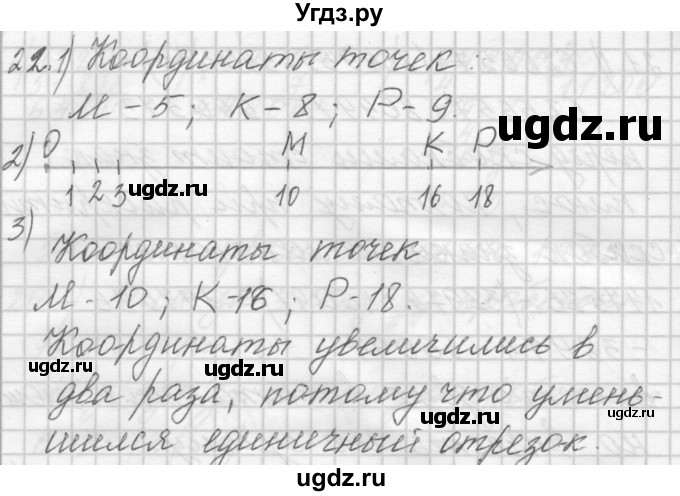 Угдз.ру
22.1) Координаты точек:
М - 5; К - 8; Р - 9.
2) 0 М К Р
1 2 3 10 16 18
3)
Координаты точек
М - 10; К - 16; Р - 18.
Координаты увеличились в
два раза, потому что умень-
шился единичный отрезок.
ugdz.ru
ugdz.ru
ugdz.ru
ugdz.ru
ugdz.ru
ugdz.ru
ugdz.ru
ugdz.ru